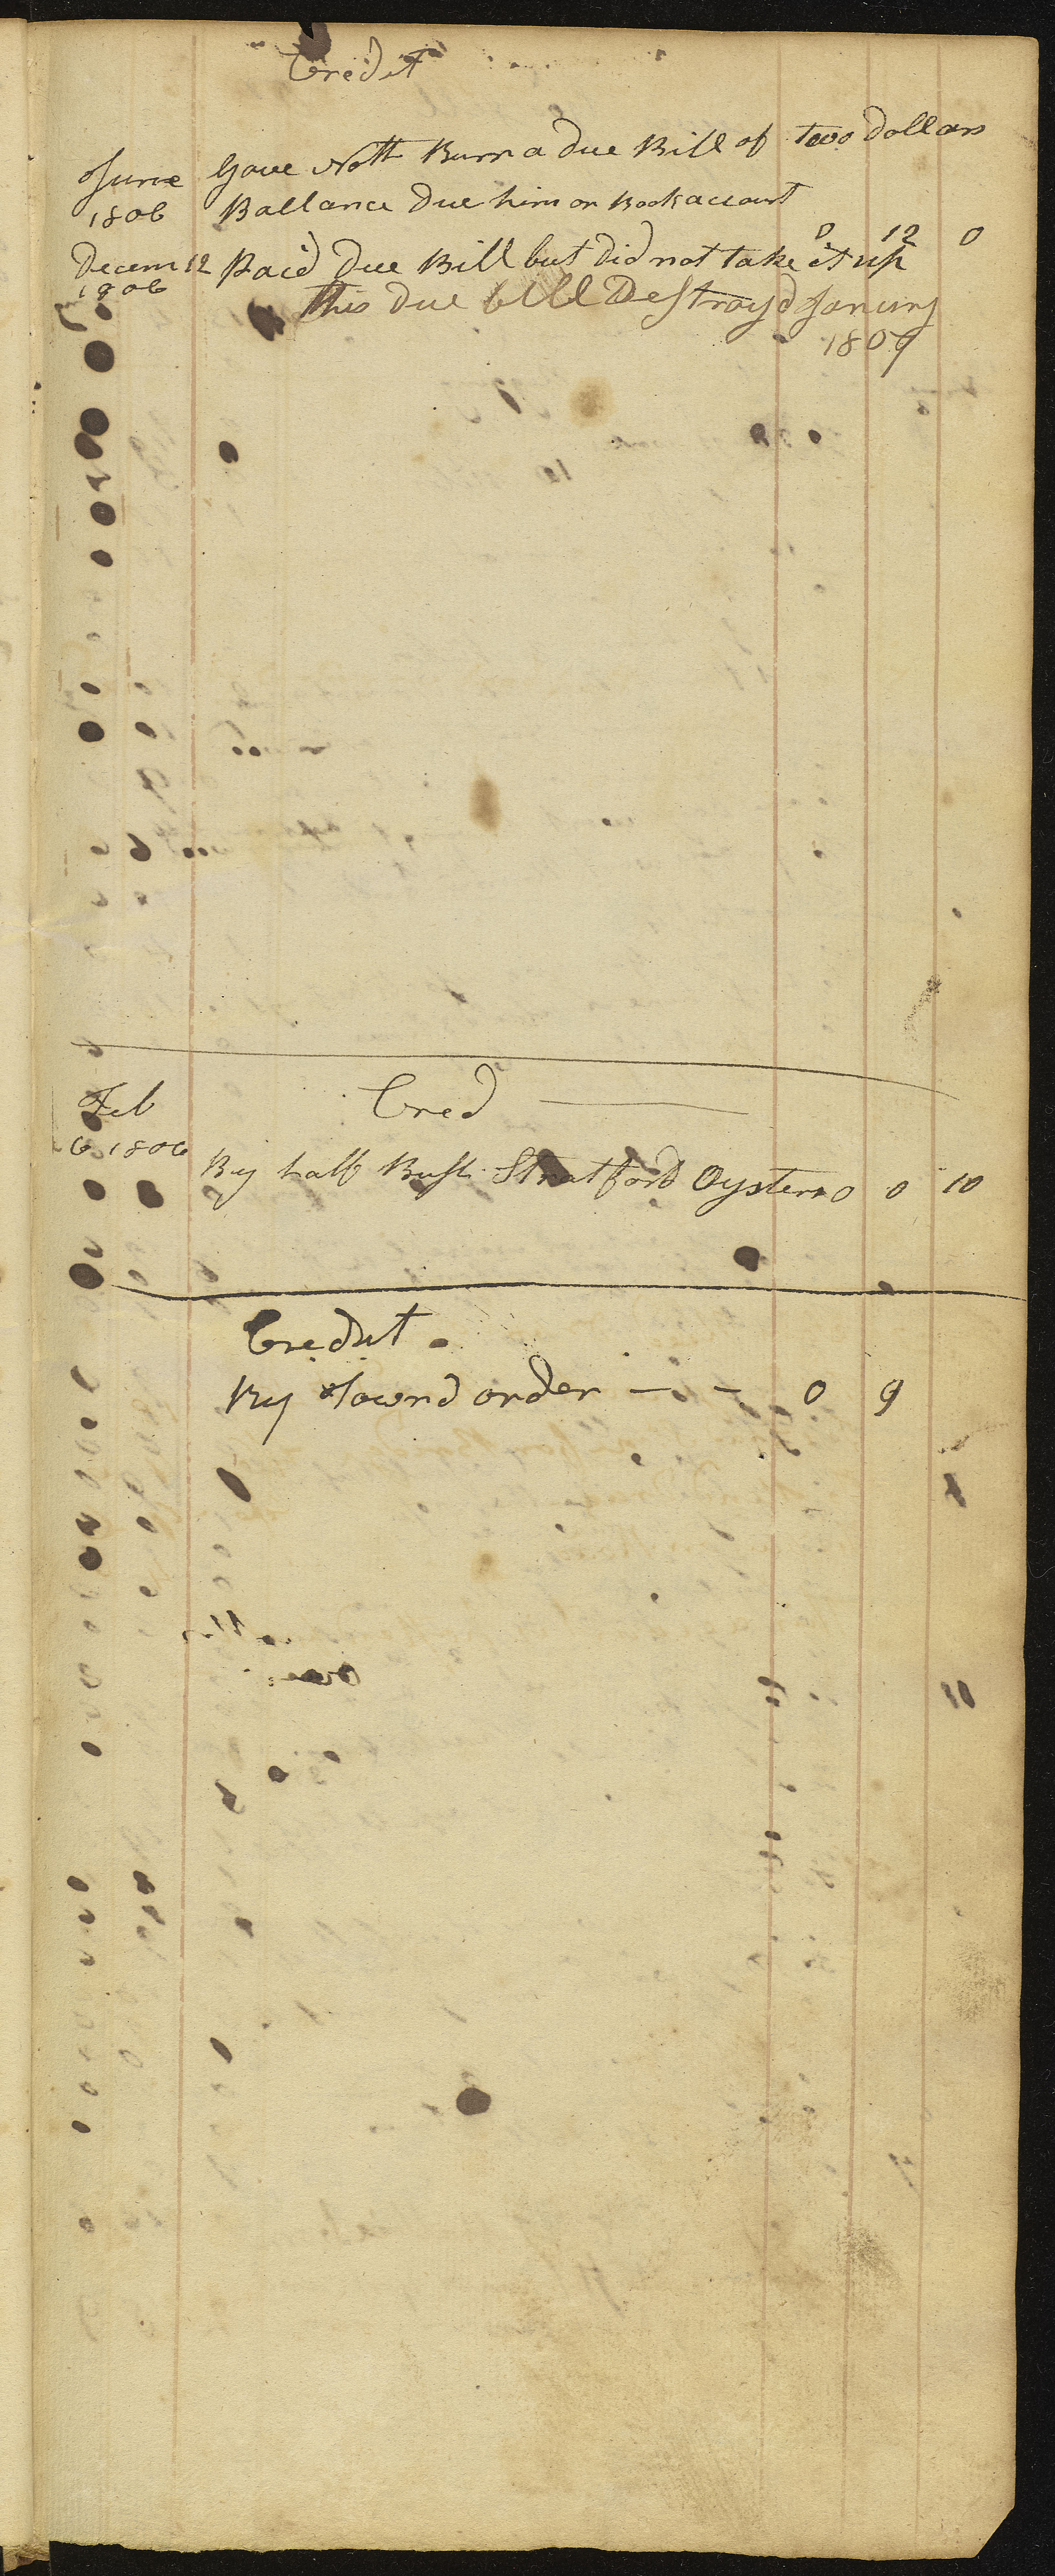 Credit
June Gave Noth Burr a Due Bill of Two Dollars
1806 Ballance Due him on Book account
0 12 0
Decem 12 Paid Due Bill but Did not take it up
1806 this Due bill Destroyd January
1809
Feb Cred
6 1806 By half Bush Stratford Oysters 0 0 10
Credit
By Town order - - 0 9